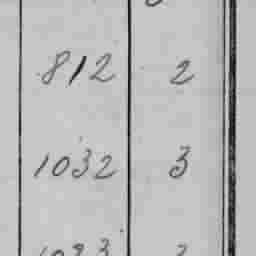 812 2
1032 3